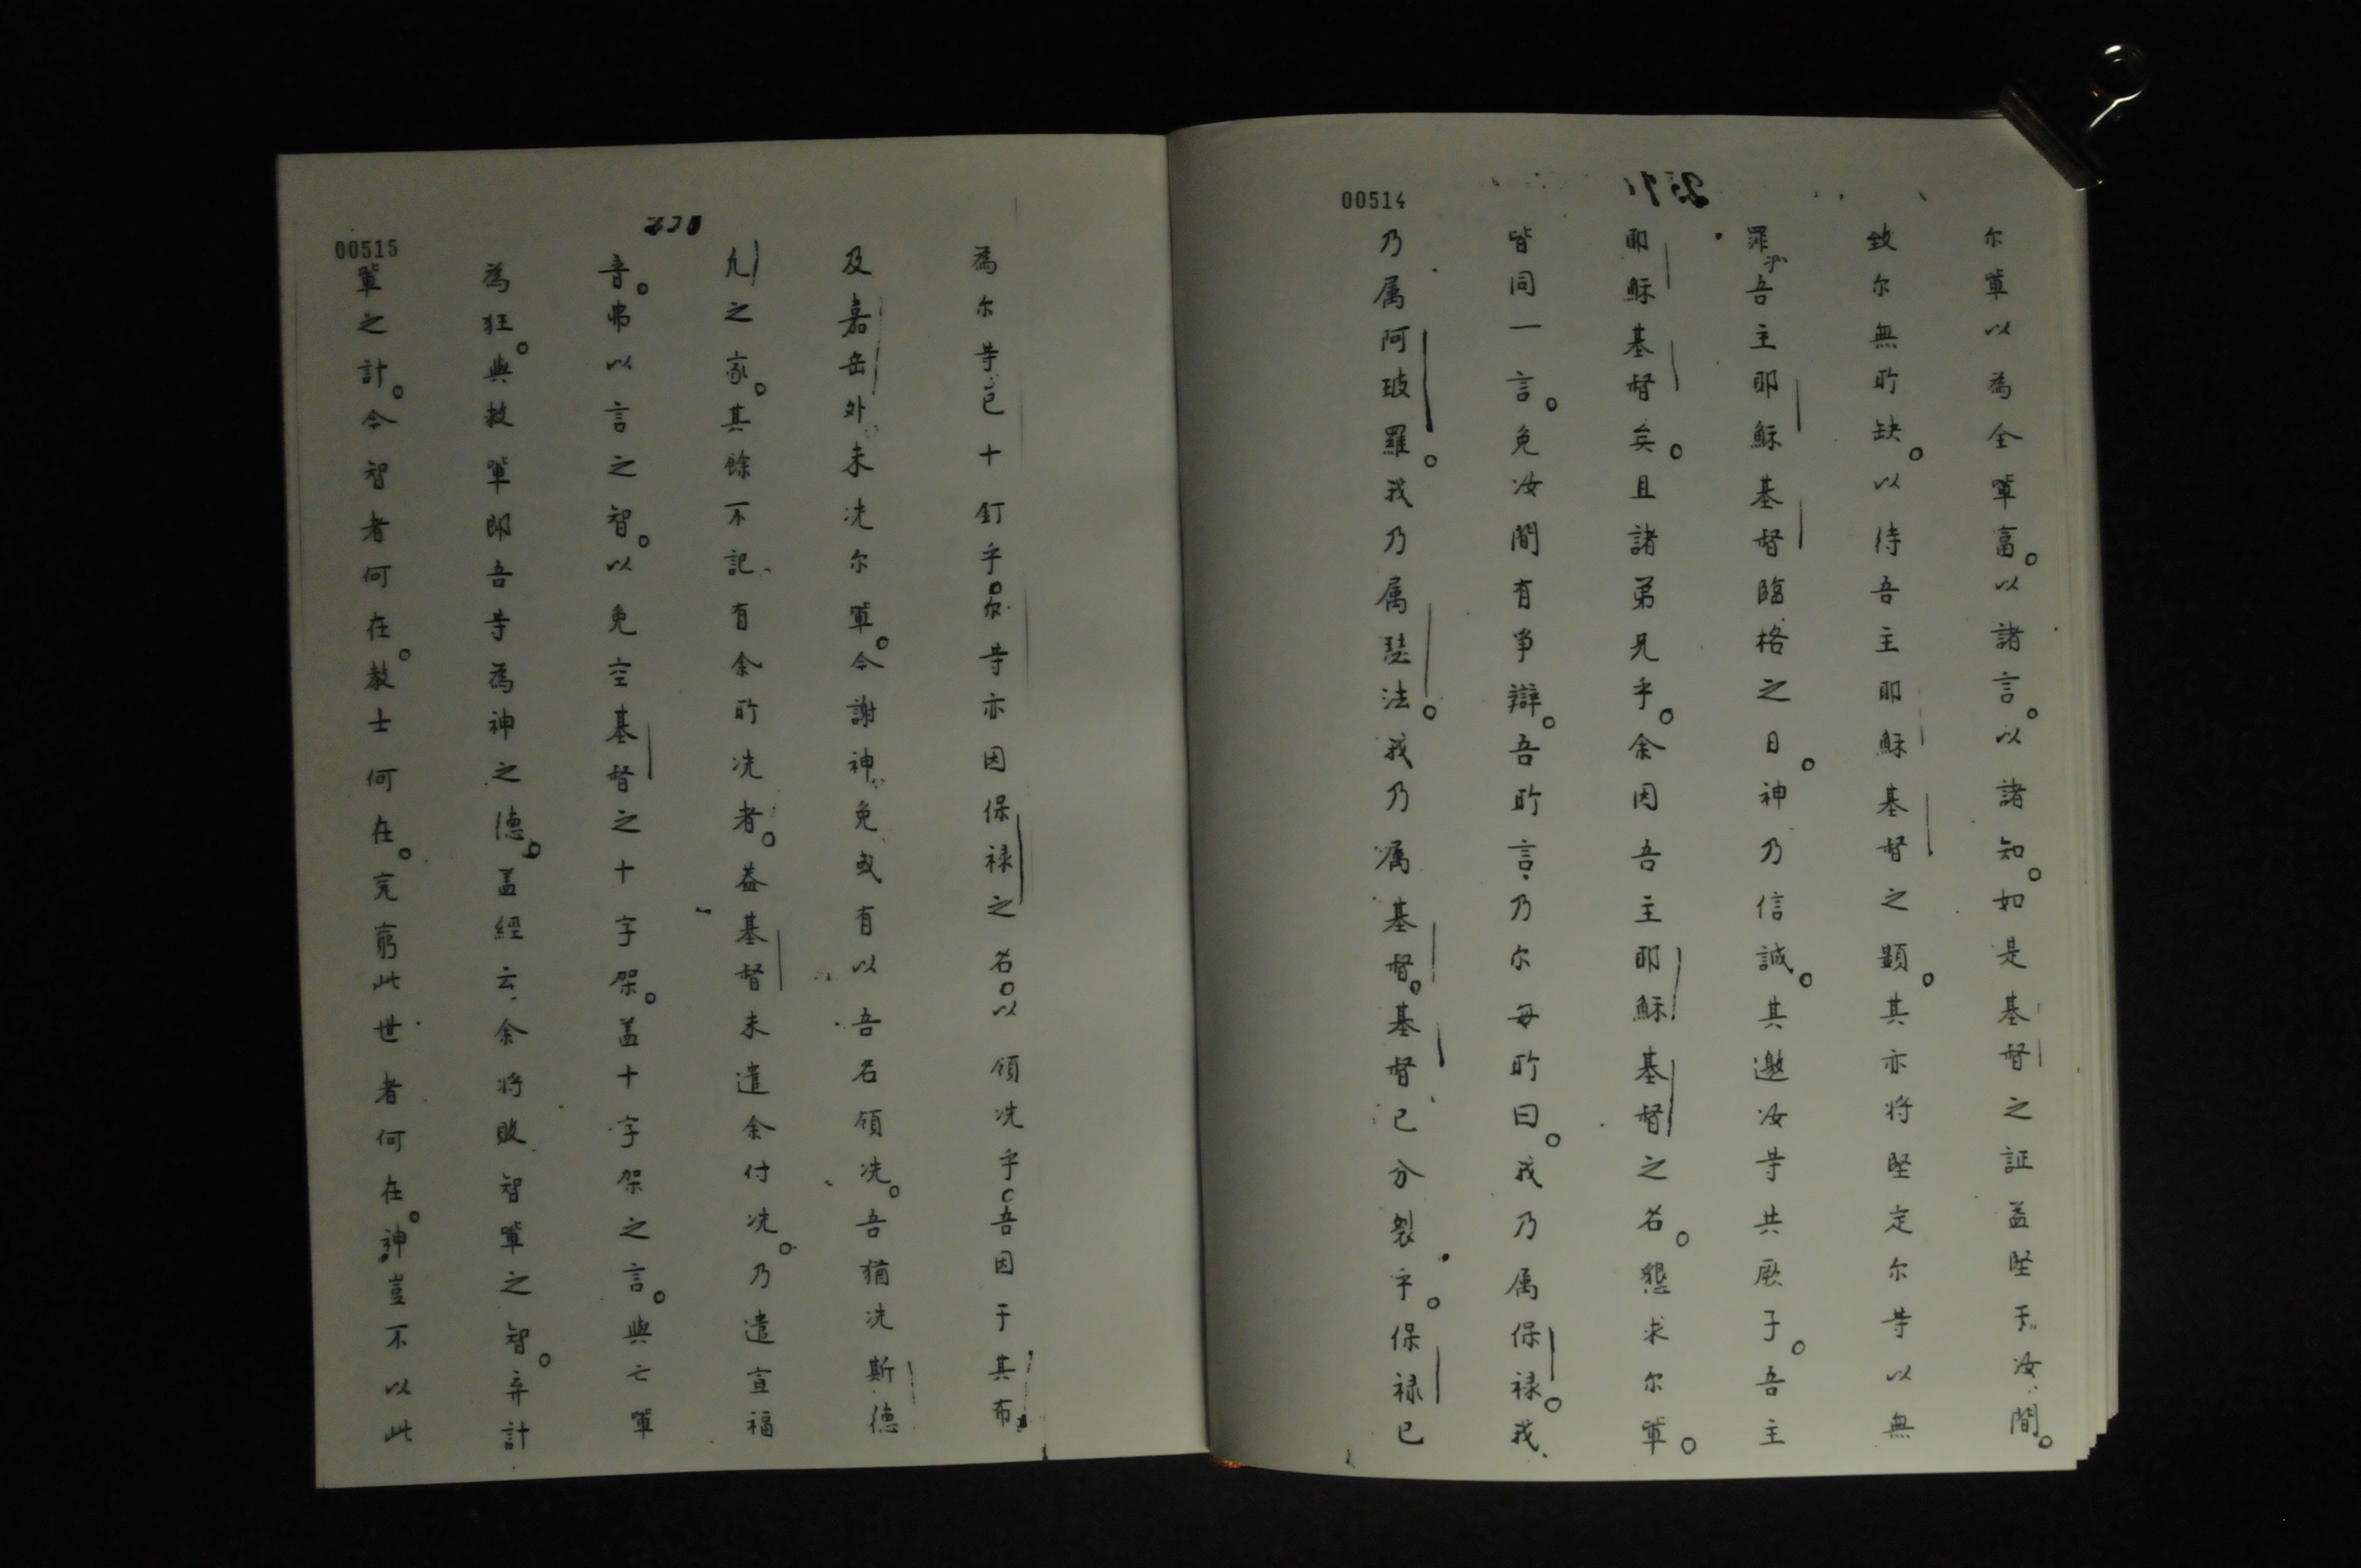 00514
尔軰以為全軰富。以諸言。以諸知。如是基督之証益堅于汝間。
致尔無所缺。以待吾主耶穌基督之顕。其亦将堅定尔等以無
罪于吾主耶穌基督臨格之日。神乃信誠。其邀汝等共厥子。吾主
耶穌基督矣。且諸弟兄乎。余因吾主耶穌基督之名。懇求尔軰。
皆同一言。免汝間有争辯。吾所言乃尔每所曰。我乃属保禄。我
乃属阿玻羅。我乃属琺法。我乃属基督。基督已分裂乎。保禄已
00515
為尔等已十釘乎。尔等亦因保禄之名。以領洗乎。吾因于其布
及嘉岳外未洗尔軰。今謝神免或有以吾名領洗。吾猶洗斯德
凢之家。其餘不記有余所洗者。葢基督未遣余付洗。乃遣宣福
音。弗以言之智。以免空基督之十字架。盖十字架之言。與亡軰
為狂。與救軰即吾等為神之德。盖經云余将敗智軰之智。弃計
軰之計。今智者何在。教士何在。究窮此世者何在。神豈不以此